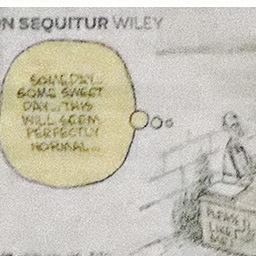 ON SEQUITUR WILEY
SOMEDAY...
SOME SWEET
DAY...THIS
WILL SEEM
PERFECTLY
NORMAL...
PLEASE
LIKE
ME!